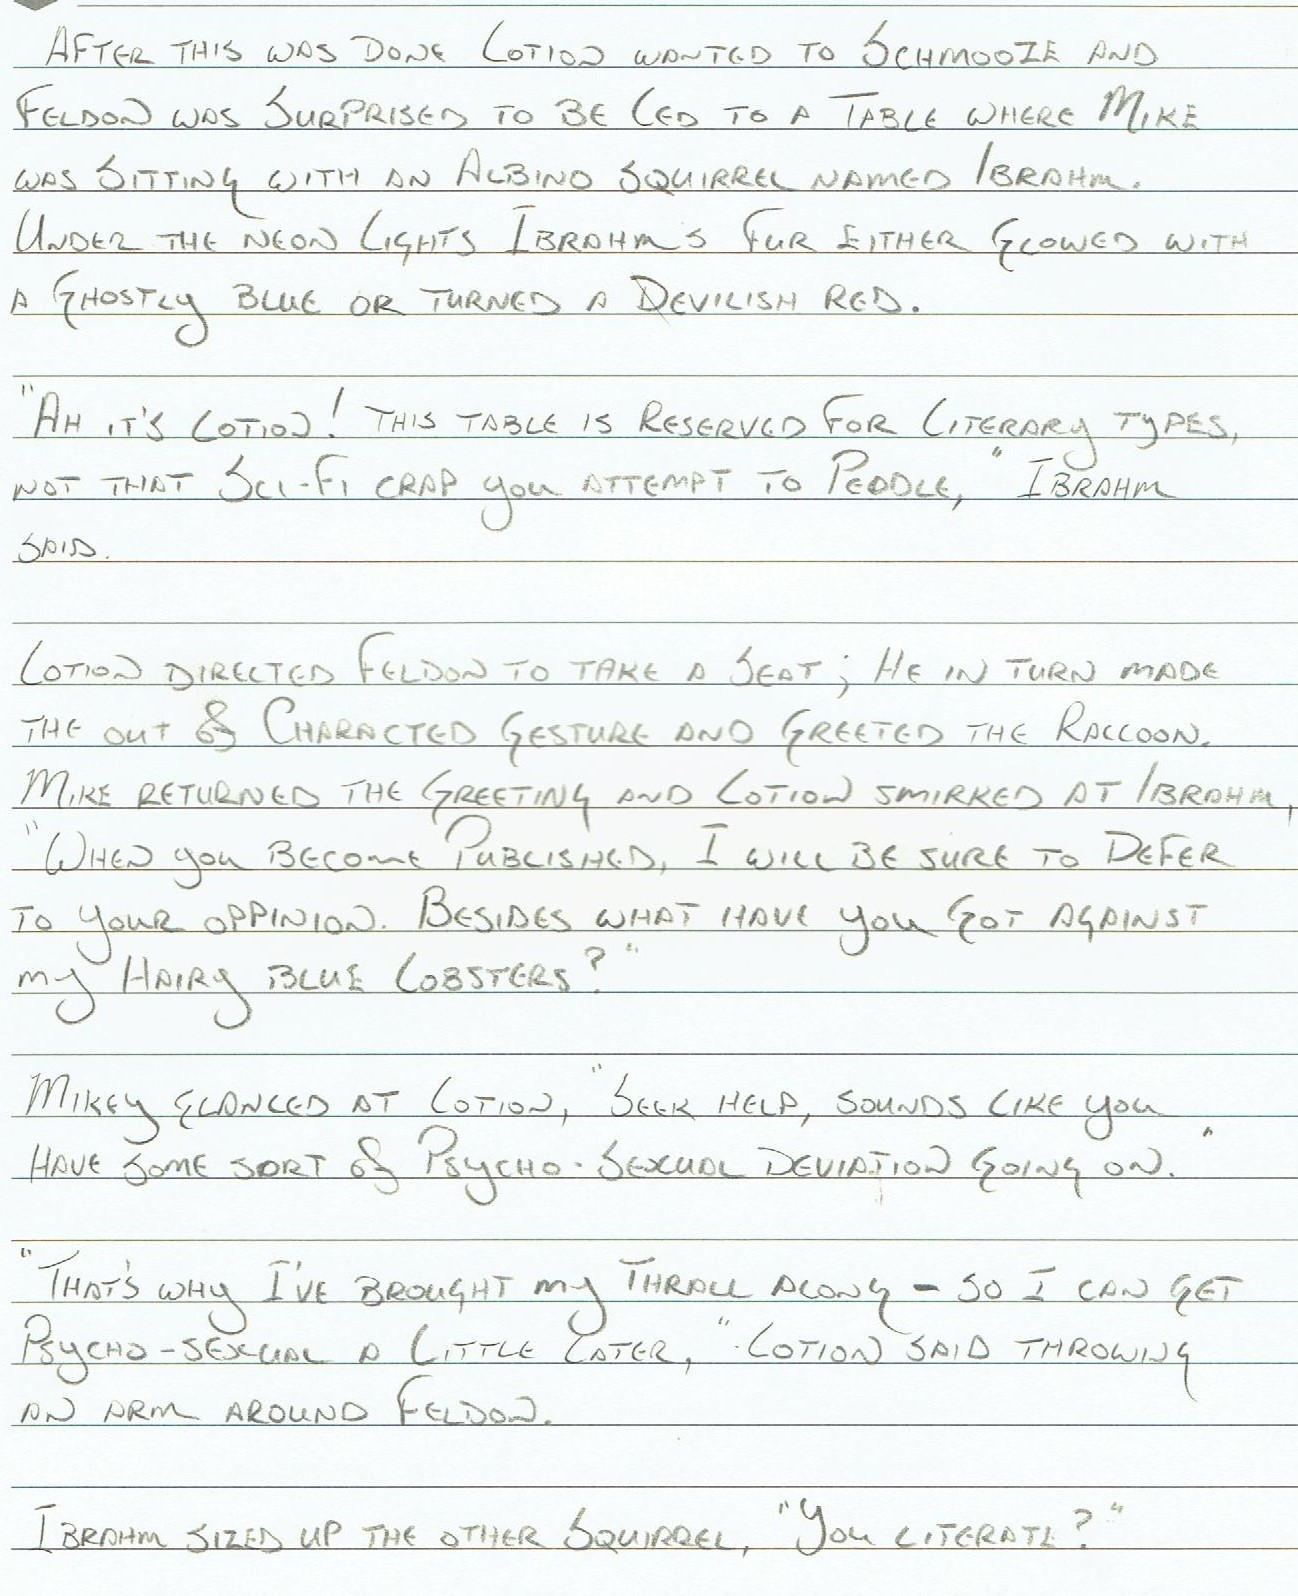 After this was done Lotion wanted to Schmooze and
Feldon was Surprised to be Led to a Table where Mike
was Sitting with an Albino Squirrel named Ibrahm.
Under the neon Lights Ibrahm's Fur Either Glowed with
a Ghostly Blue or turned a Devilish Red.
"Ah it's Lotion! This table is Reserved For Literary types,
not that Sci-Fi crap you attempt to Peddle," Ibrahm
said.
Lotion directed Feldon to take a Seat; He in turn made
the out of Characted Gesture and Greeted the Raccoon.
Mike returned the Greeting and Lotion smirked at Ibrahm,
"When you become Published, I will be sure to Defer
to your oppinion. Besides what have you Got against
my Hairy Blue Lobsters?"
Mikey glanced at Lotion, "Seek help, sounds like you
Have some sort of Psycho-Sexual Deviation Going on."
"That's why I've brought my Thrall along - so I can get
Psycho-sexual a Little Later," Lotion said throwing
an arm around Feldon.
Ibrahm sized up the other Squirrel, "You literate?"